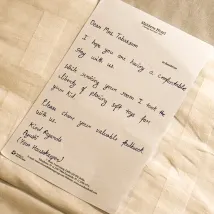 Dear Mrs
I hope you are having a comfortable
stay with us.
While making your room I took the
liberty of placing soft toys for
your kid.
Please share your valuable feedback
with us.
Kind Regards
(Your Housekeeper)